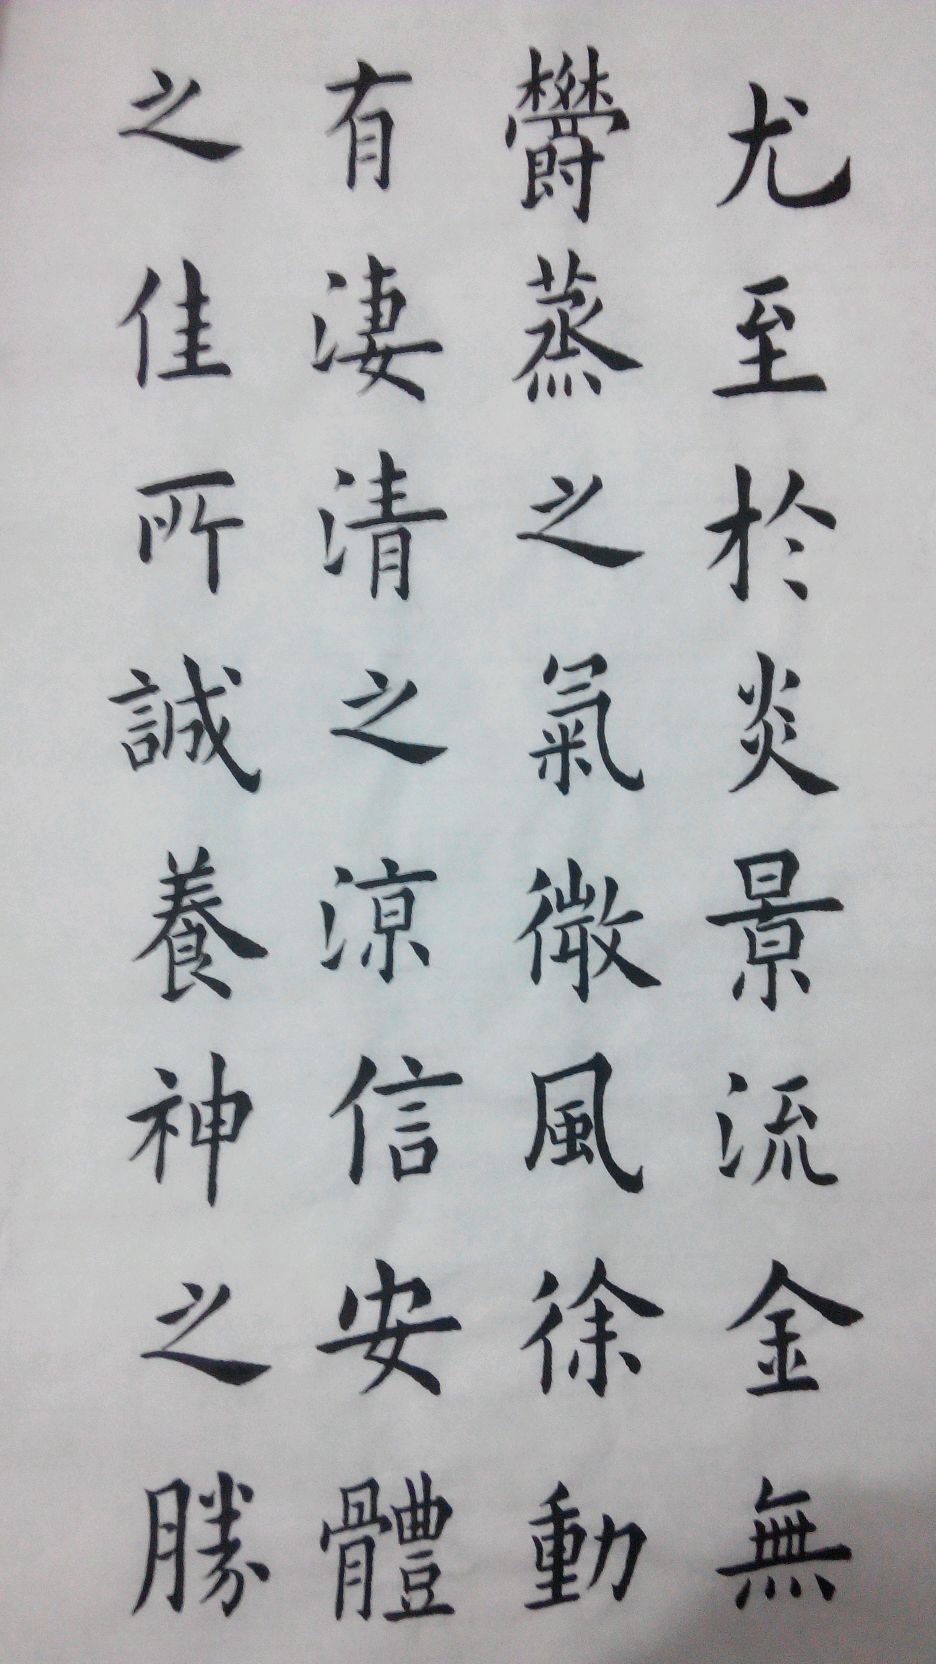 尤至於炎景流金無
欝蒸之氣微風徐動
有淒清之涼信安體
之佳所誠養神之勝